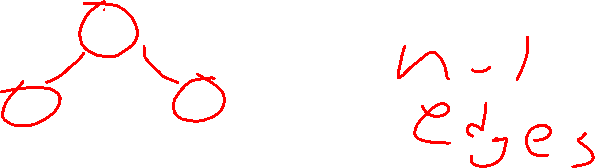 n-1
edges